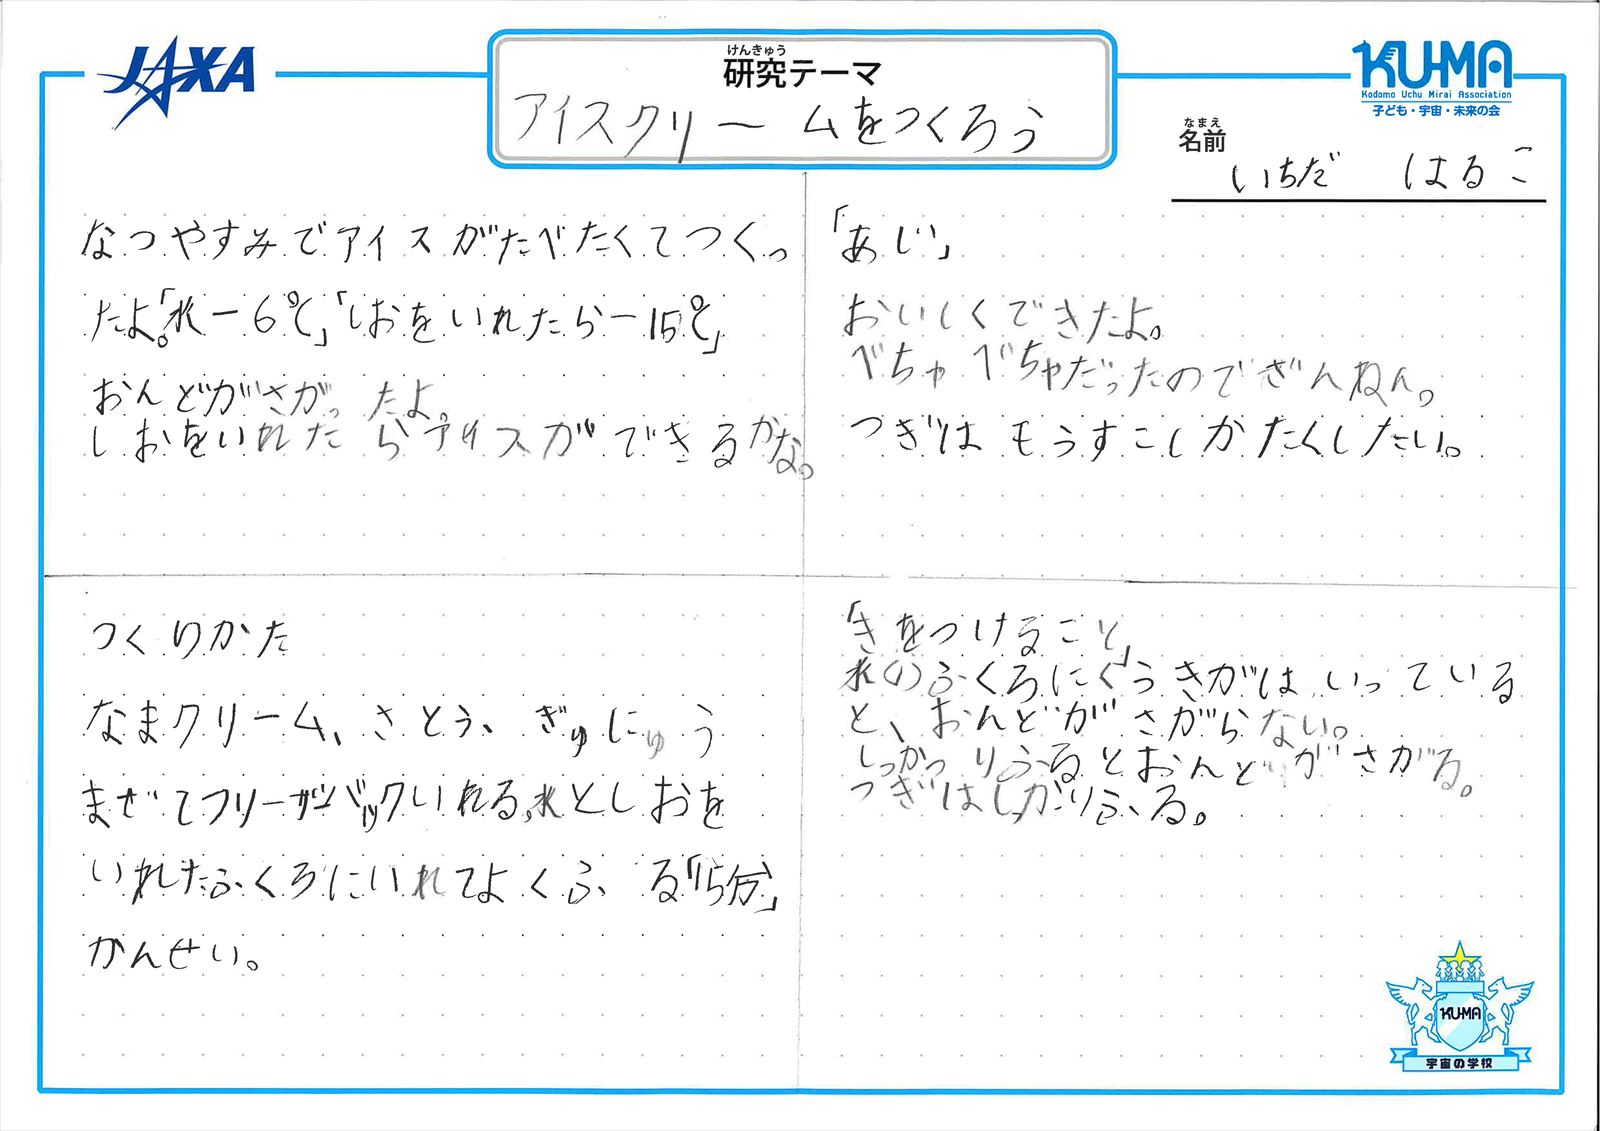 JAXA
けんきゅう
研究テーマ
アイスクリームをつくろう
KU-MA
Kodomo Uchu Mirai Association
子ども・宇宙・未来の会
なまえ
名前
いちだ はるこ
なつやすみでアイスがたべたくてつくっ
たよ。「氷-6℃」「しおをいれたら-15℃」
おんどがさがったよ。
しおをいれたらアイスができるかな。
「あじ」
おいしくできたよ。
べちゃべちゃだったのでざんねん。
つぎはもうすこしかたくしたい。
つくりかた
なまクリーム、さとう、ぎゅにゅう
まぜてフリーザーバックいれる。氷としおを
いれたふくろにいれてよくふる「15分」
かんせい。
「きをつけること」
氷のふくろにくうきがはいっている
と、おんどがさがらない。
しっかっりふるとおんどがさがる。
つぎはしっかりふる。
KU-MA
宇宙の学校